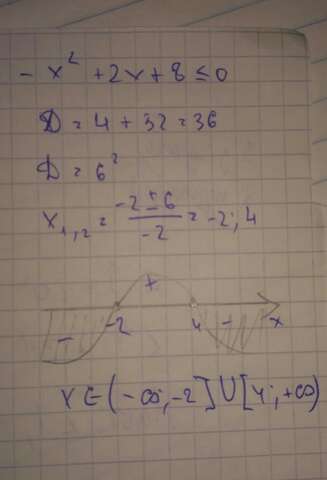 - x² + 2x + 8 ≤ 0
D = 4 + 32 = 36
D = 6²
x₁,₂ = (-2 ± 6)/(-2) = -2; 4
+
- -2 4 - x
x ∈ (-∞; -2] ∪ [4; +∞)